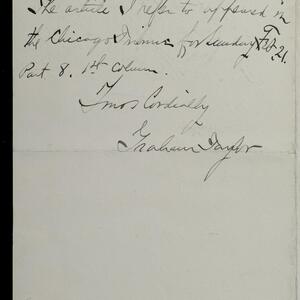 The article I refer to appeared in
the Chicago Tribune for Sunday Feb 21.
Part 8. 1st Column.
Most Cordially
Graham Taylor